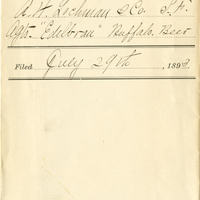 A. H. Lochman & Co. S. F.
Agts. "Edelbrau" Buffalo Beer
Filed July 29th, 1898